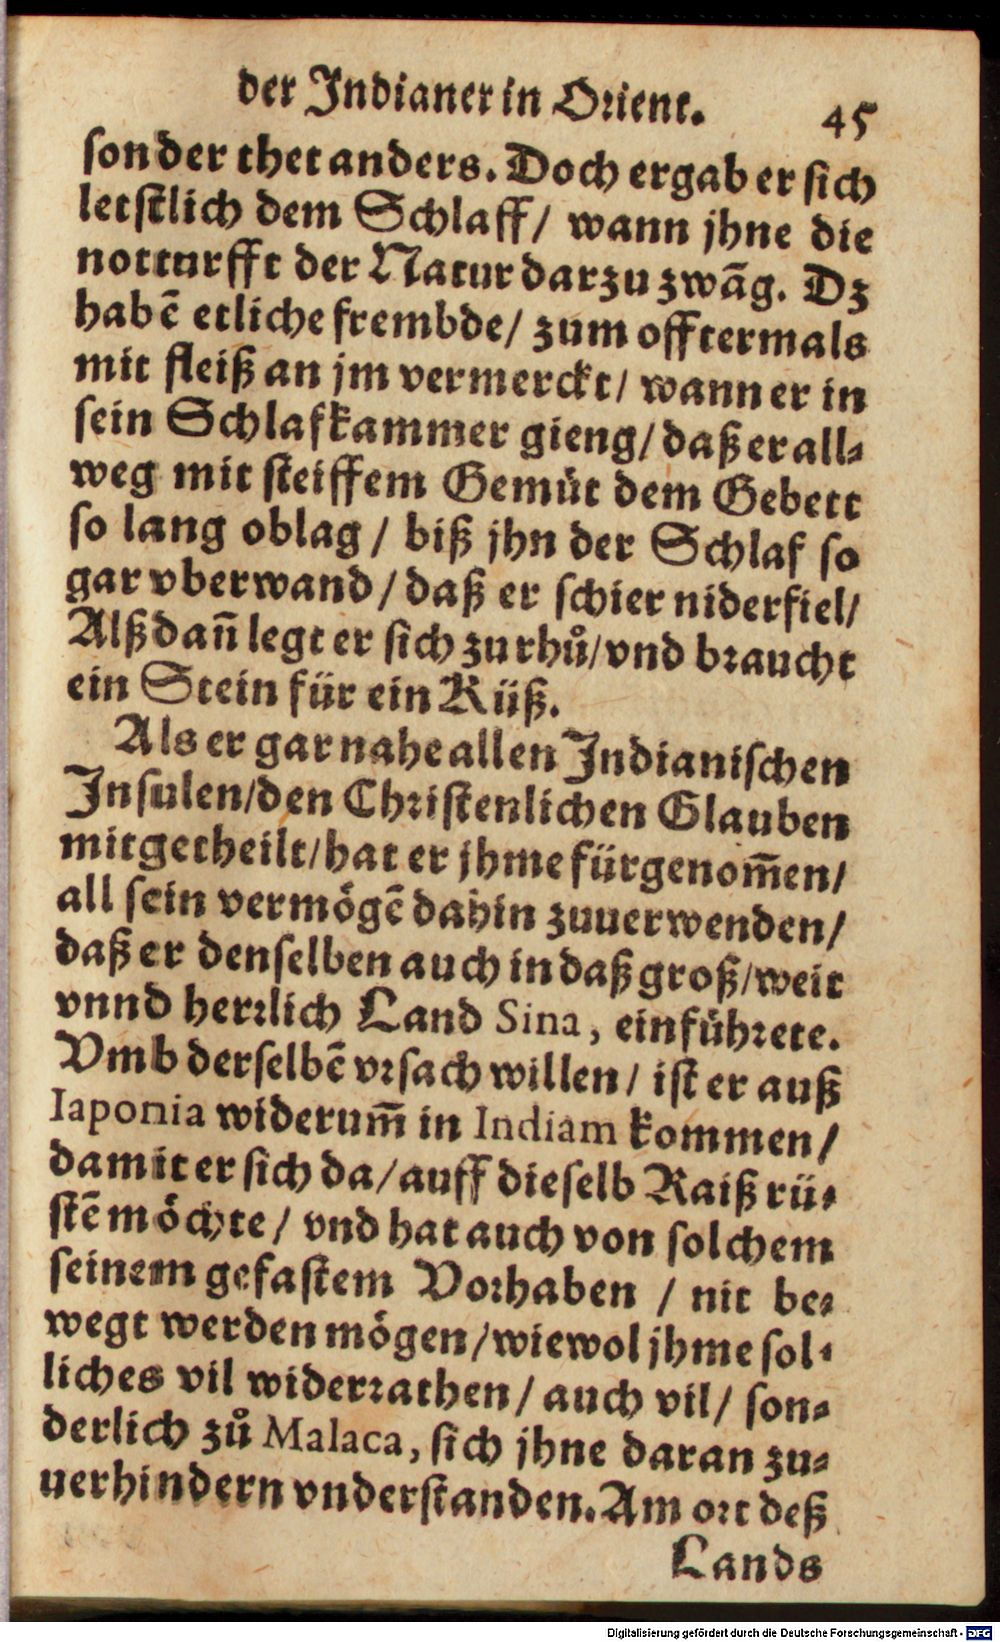 der Indianer in Orient. 45
sonder thet anders. Doch ergab er sich
letstlich dem Schlaff / wann jhne die
notturfft der Natur darzu zwãg. Dz
habẽ etliche frembde / zum offtermals
mit fleiß an jm vermerckt / wann er in
sein Schlafkammer gieng / daß er all⸗
weg mit steiffem Gemüt dem Gebett
so lang oblag / biß jhn der Schlaf so
gar vberwand / daß er schier niderfiel /
Alß dañ legt er sich zu rhů / vnd braucht
ein Stein für ein Küß.
Als er gar nahe allen Indianischen
Insulen / den Christenlichen Glauben
mitgetheilt / hat er jhme fürgenom̃en /
all sein vermögẽ dahin zuuerwenden /
daß er denselben auch in daß groß / weit
vnnd herrlich Land Sina, einführete.
Vmb derselbẽ vrsach willen / ist er auß
Iaponia widerum̃ in Indiam kommen /
damit er sich da / auff dieselb Raiß rü⸗
stẽ möchte / vnd hat auch von solchem
seinem gefastem Vorhaben / nit be⸗
wegt werden mögen / wiewol jhme sol⸗
liches vil widerrathen / auch vil / son⸗
derlich zů Malaca, sich jhne daran zu⸗
uerhindern vnderstanden. Am ort deß
Lands
Digitalisierung gefördert durch die Deutsche Forschungsgemeinschaft - DFG